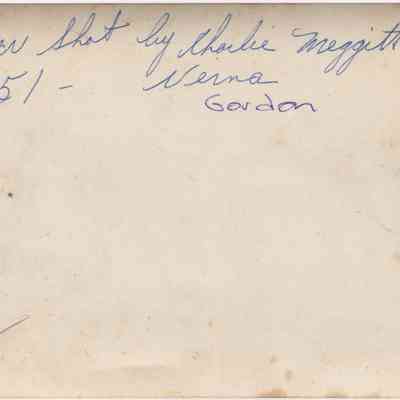 Shot by Charlie Meggitt
51 - Verna
Gordon